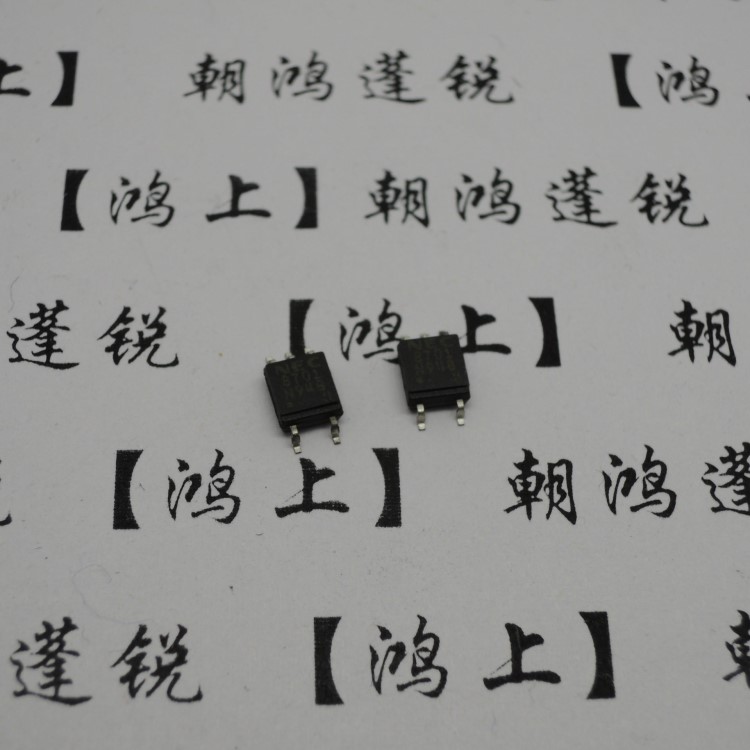 上】 朝鸿蓬锐 【鸿
【鸿上】 朝鸿蓬锐
蓬锐 【鸿上】 朝
NEC
【鸿上】 朝鸿蓬
蓬锐 【鸿上】